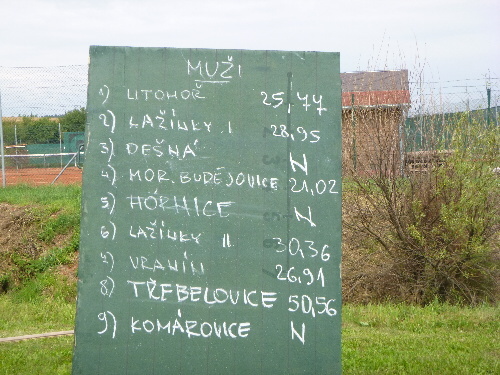 MUŽI
1) LITOHOŘ 25,77
2) LAŽÍNKY I 28,95
3) DEŠNÁ N
4) MOR. BUDĚJOVICE 21,02
5) HORNICE N
6) LAŽÍNKY II 30,36
7) VRANÍN 26,91
8) TŘEBELOVICE 50,56
9) KOMÁROVICE N